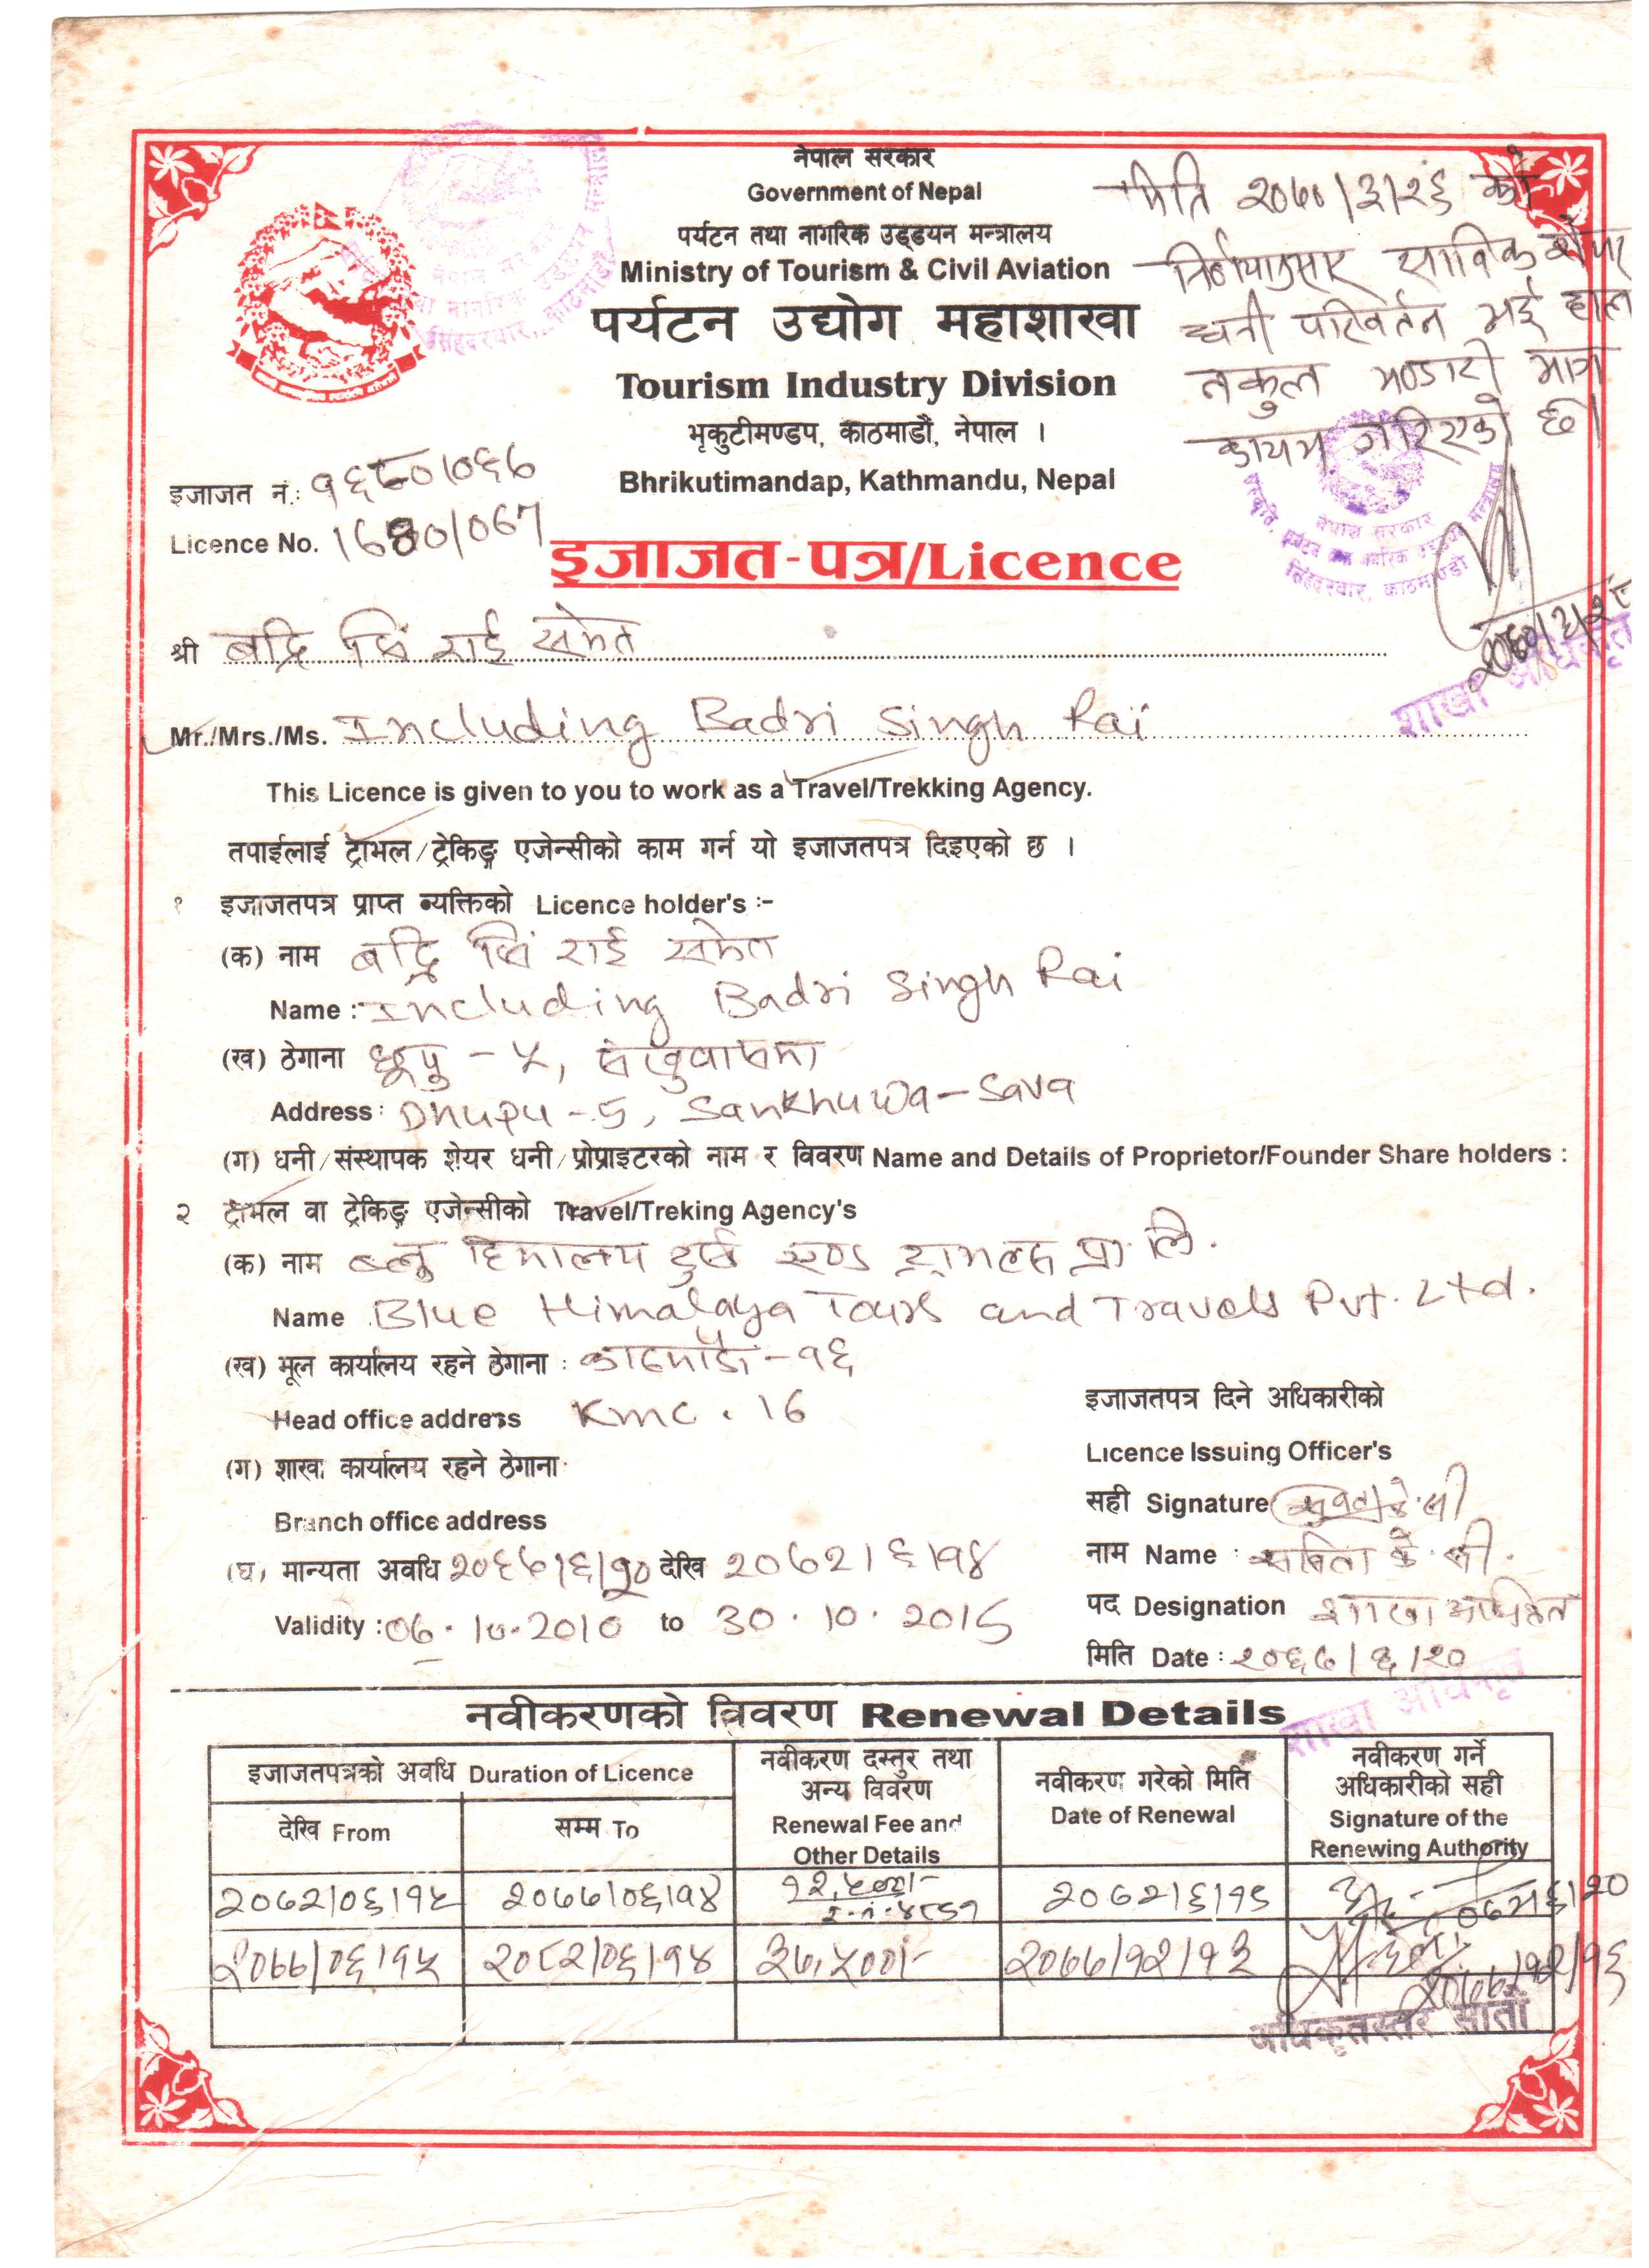 नेपाल सरकार
Government of Nepal
पर्यटन तथा नागरिक उड्डयन मन्त्रालय
Ministry of Tourism & Civil Aviation
पर्यटन उद्योग महाशाखा
Tourism Industry Division
भृकुटीमण्डप, काठमाडौं, नेपाल ।
Bhrikutimandap, Kathmandu, Nepal
मिति २०७०/३/२६ को
निर्णयानुसार साविक शेयर
धनी परिवर्तन भई हाल
नकुल भण्डारी मात्र
कायम गरिएको छ।
नेपाल सरकार
सिंहदरवार, काठमाण्डौ
इजाजत नं.: १६८०/०६७
Licence No. 1680/067
इजाजत-पत्र/Licence
श्री बद्रि सिं राई समेत
शाखा अधिकृत
Mr./Mrs./Ms. Including Badri Singh Rai
This Licence is given to you to work as a Travel/Trekking Agency.
तपाईलाई ट्राभल/ट्रेकिङ्ग एजेन्सीको काम गर्न यो इजाजतपत्र दिइएको छ ।
१ इजाजतपत्र प्राप्त व्यक्तिको Licence holder's :-
(क) नाम बद्रि सिं राई समेत
Name : Including Badri Singh Rai
(ख) ठेगाना धूपु - ५, संखुवासभा
Address : Dhupu - 5, Sankhuwa-Sava
(ग) धनी/संस्थापक शेयर धनी/प्रोप्राइटरको नाम र विवरण Name and Details of Proprietor/Founder Share holders :
२ ट्राभल वा ट्रेकिङ्ग एजेन्सीको Travel/Treking Agency's
(क) नाम ब्लु हिमालय टुर्स एण्ड ट्राभल्स प्रा. लि.
Name Blue Himalaya Tours and Travels Pvt. Ltd.
(ख) मूल कार्यालय रहने ठेगाना : काठमाडौं - १६
Head office address KMC. 16
(ग) शाखा कार्यालय रहने ठेगाना
Branch office address
(घ) मान्यता अवधि २०६७/६/२० देखि २०७२/६/१४
Validity : 06.10.2010 to 30.10.2015
इजाजतपत्र दिने अधिकारीको
Licence Issuing Officer's
सही Signature
नाम Name : सबिता के. सी.
पद Designation शाखा अधिकृत
मिति Date : २०६७/६/२०
शाखा अधिकृत
नवीकरणको विवरण Renewal Details
इजाजतपत्रको अवधि Duration of Licence
देखि From
सम्म To
नवीकरण दस्तुर तथा अन्य विवरण
Renewal Fee and Other Details
नवीकरण गरेको मिति
Date of Renewal
नवीकरण गर्ने अधिकारीको सही
Signature of the Renewing Authority
२०७२/०६/१५ २०७७/०६/१४ १२,५००/- २०७२/६/१९ ०७२/६/२०
२०७७/०६/१५ २०८२/०६/१४ ३७,५००/- २०७७/१२/१३ २०७७/१२/१६
अधिकृतस्तर सातौं